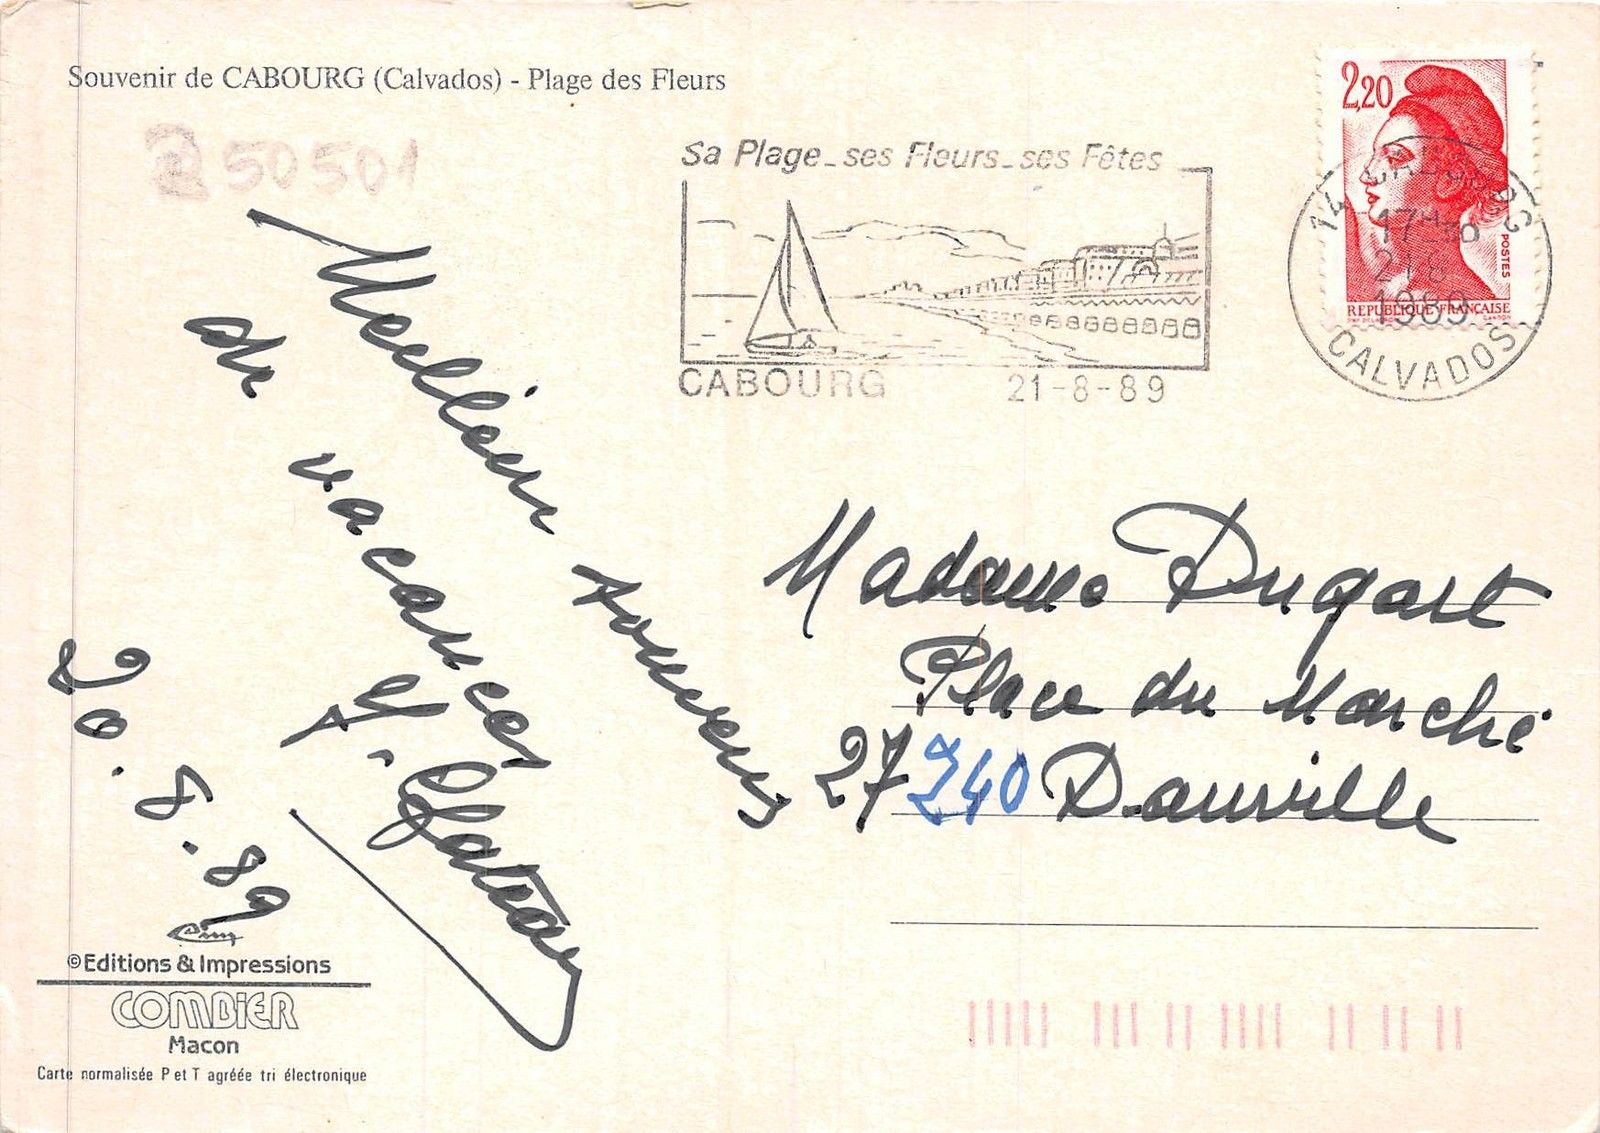 Souvenir de CABOURG (Calvados) - Plage des Fleurs
250501
Sa Plage_ses Fleurs_ses Fêtes
CABOURG 21-8-89
2,20
POSTES
REPUBLIQUE FRANÇAISE
14 CABOURG
17H30
21-8
1989
CALVADOS
Meilleurs souvenirs
de vacances
20.8.89
Madame Dugart
Place du Marché
27240 Damville
©Editions & Impressions
COMBIER
Macon
Carte normalisée P et T agréée tri électronique